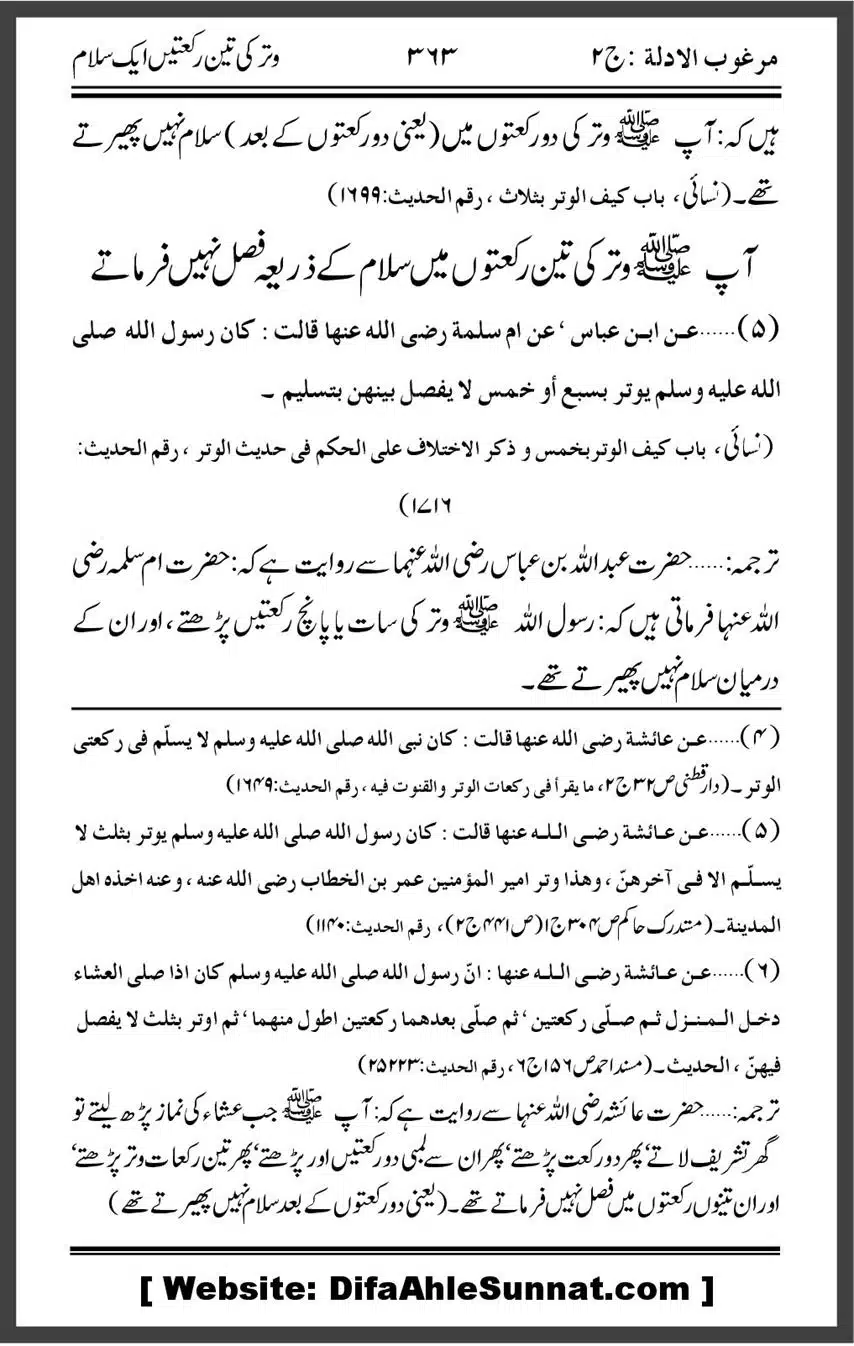 مرغوب الادلة : ج۲ ۳۶۳ وتر کی تین رکعتیں ایک سلام
ہیں کہ: آپ ﷺ وتر کی دو رکعتوں میں (یعنی دو رکعتوں کے بعد) سلام نہیں پھیرتے
تھے۔ (نسائی، باب کیف الوتر بثلاث، رقم الحدیث: ۱۶۹۹)
آپ ﷺ وتر کی تین رکعتوں میں سلام کے ذریعہ فصل نہیں فرماتے
(۵)......عن ابن عباس، عن ام سلمة رضی الله عنها قالت : كان رسول الله صلی
الله علیه وسلم یوتر بسبع أو خمس لا یفصل بینهن بتسلیم ۔
(نسائی، باب کیف الوتر بخمس و ذکر الاختلاف علی الحکم فی حدیث الوتر، رقم الحدیث:
۱۷۱۶)
ترجمہ:......حضرت عبد اللہ بن عباس رضی اللہ عنہما سے روایت ہے کہ: حضرت ام سلمہ رضی
اللہ عنہا فرماتی ہیں کہ: رسول اللہ ﷺ وتر کی سات یا پانچ رکعتیں پڑھتے، اور ان کے
درمیان سلام نہیں پھیرتے تھے۔
(۴)......عن عائشة رضی الله عنها قالت : كان نبی الله صلی الله علیه وسلم لا یسلّم فی رکعتی
الوتر۔ (دار قطنی ص۳۲ ج۲، ما یقرأ فی رکعات الوتر والقنوت فیه، رقم الحدیث: ۱۶۴۹)
(۵)......عن عائشة رضی الله عنها قالت : كان رسول الله صلی الله علیه وسلم یوتر بثلث لا
یسلّم الا فی آخرهنّ، وهذا وتر امیر المؤمنین عمر بن الخطاب رضی الله عنه، وعنه اخذه اهل
المدینة۔ (مستدرک حاکم ص۳۰۴ ج۱ (ص۴۴۱ ج۲)، رقم الحدیث: ۱۱۴۰)
(۶)......عن عائشة رضی الله عنها : انّ رسول الله صلی الله علیه وسلم كان اذا صلی العشاء
دخل المنزل ثم صلّی رکعتین، ثم صلّی بعدهما رکعتین اطول منهما، ثم اوتر بثلث لا یفصل
فیهنّ، الحدیث۔ (مسند احمد ص۱۵۶ ج۶، رقم الحدیث: ۲۵۲۲۳)
ترجمہ:......حضرت عائشہ رضی اللہ عنہا سے روایت ہے کہ: آپ ﷺ جب عشاء کی نماز پڑھ لیتے تو
گھر تشریف لاتے، پھر دو رکعت پڑھتے، پھر ان سے لمبی دو رکعتیں اور پڑھتے، پھر تین رکعات وتر پڑھتے،
اور ان تینوں رکعتوں میں فصل نہیں فرماتے تھے۔ (یعنی دو رکعتوں کے بعد سلام نہیں پھیرتے تھے)
[ Website: DifaAhleSunnat.com ]